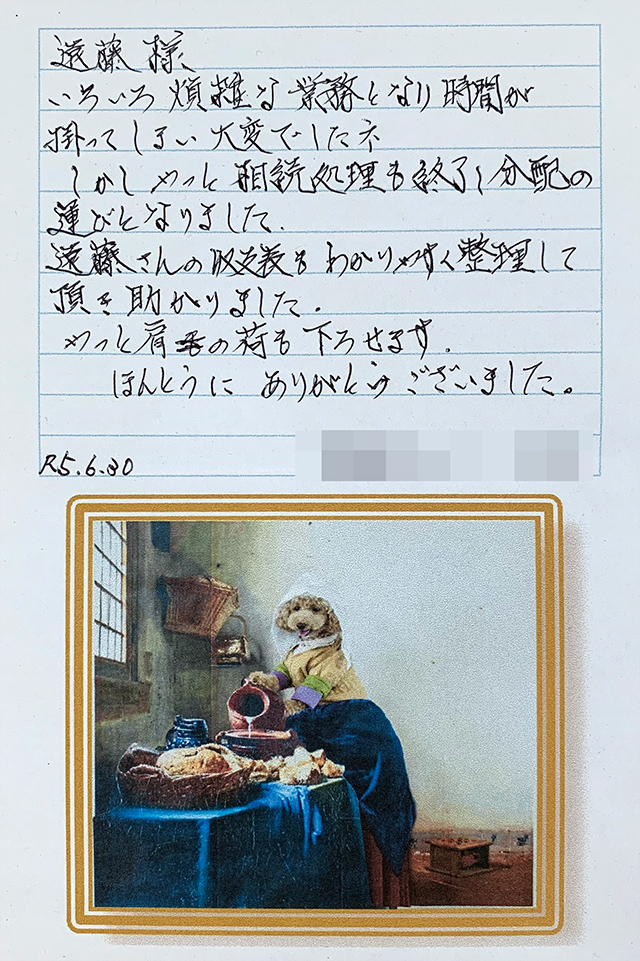 遠藤 様、
いろいろ 煩雑な 業務となり 時間が
掛ってしまい 大変でしたネ
しかし やっと 相続処理も終了し 分配の
運びとなりました、
遠藤さんの収支義もわかりやすく整理して
頂き 助かりました.
やっと肩の荷も下ろせます.
ほんとうに ありがとう ございました。
R5.6.30